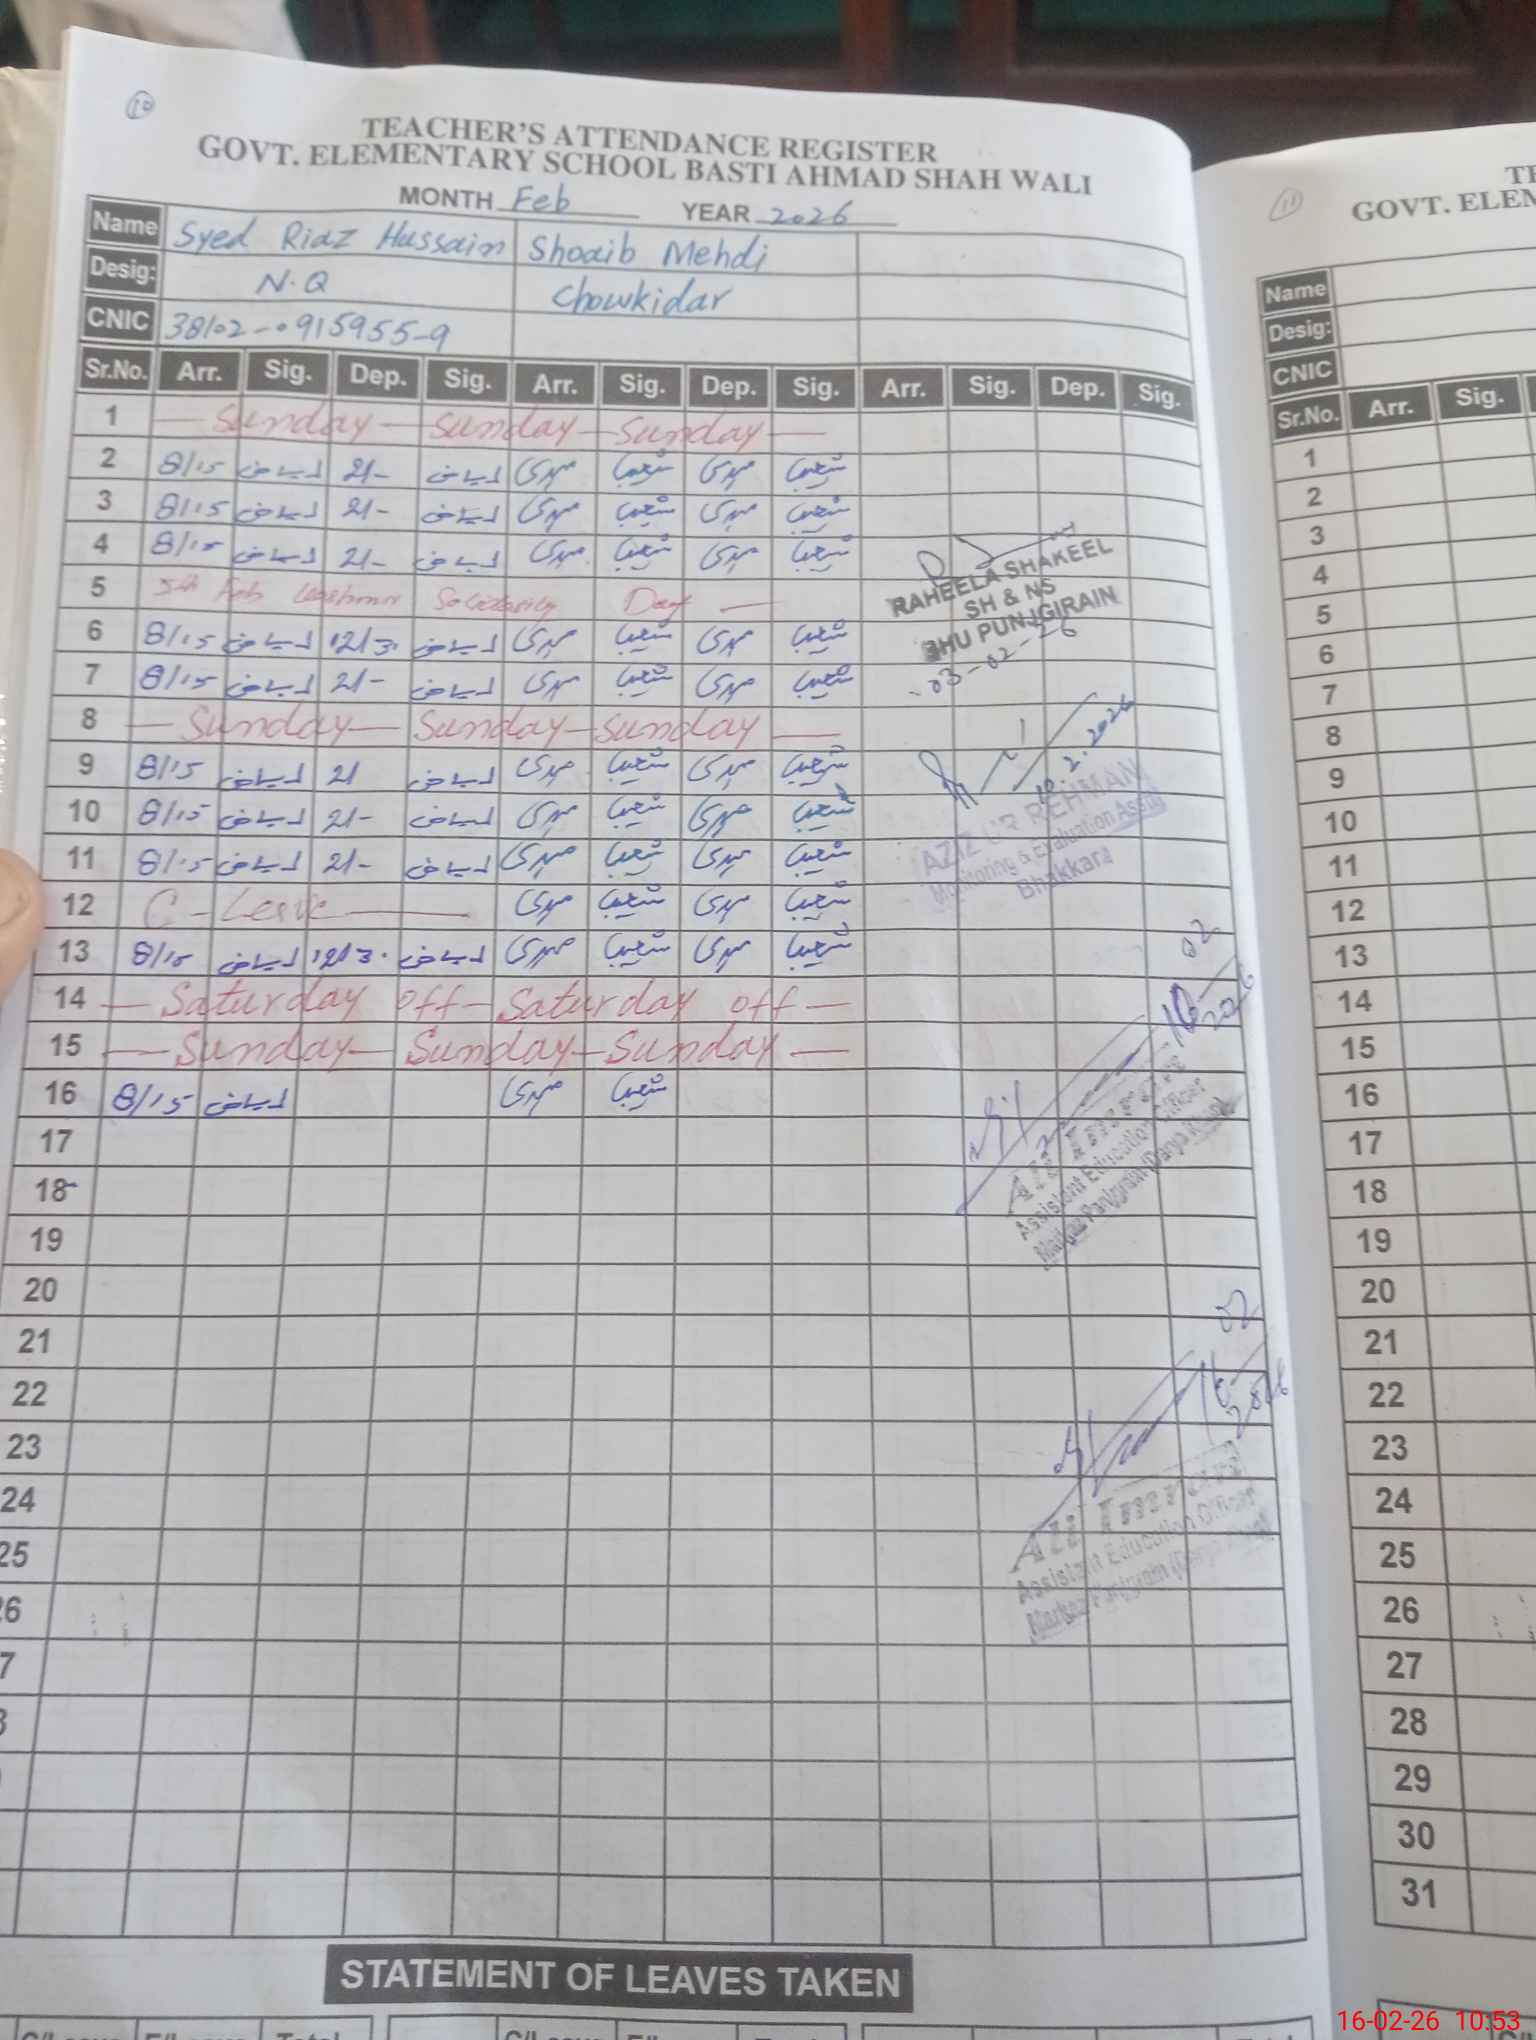 10
TEACHER'S ATTENDANCE REGISTER
GOVT. ELEMENTARY SCHOOL BASTI AHMAD SHAH WALI
MONTH Feb YEAR 2026
Name Syed Riaz Hussain Shoaib Mehdi
Desig: N.Q Chowkidar
CNIC 38102-0915955-9
Sr.No. Arr. Sig. Dep. Sig. Arr. Sig. Dep. Sig. Arr. Sig. Dep. Sig.
1 — Sunday — Sunday — Sunday —
2 8/15 ریاض 2/- ریاض مہدی شعیب مہدی شعیب
3 8/15 ریاض 2/- ریاض مہدی شعیب مہدی شعیب
4 8/15 ریاض 2/- ریاض مہدی شعیب مہدی شعیب
5 5th Feb Kashmir Solidarity Day —
6 8/15 ریاض 12/30 ریاض مہدی شعیب مہدی شعیب
7 8/15 ریاض 2/- ریاض مہدی شعیب مہدی شعیب
8 — Sunday — Sunday — Sunday —
9 8/15 ریاض 2/ ریاض مہدی شعیب مہدی شعیب
10 8/15 ریاض 2/- ریاض مہدی شعیب مہدی شعیب
11 8/15 ریاض 2/- ریاض مہدی شعیب مہدی شعیب
12 C-Leave — مہدی شعیب مہدی شعیب
13 8/15 ریاض 12/30 ریاض مہدی شعیب مہدی شعیب
14 — Saturday off — Saturday off —
15 — Sunday — Sunday — Sunday —
16 8/15 ریاض مہدی شعیب
17
18
19
20
21
22
23
24
25
26
7
RAHEELA SHAKEEL
SH & NS
BHU PUNJGIRAIN
03-02-26
10.2.2026
AZIZ UR REHMAN
Monitoring & Evaluation Assit
Bhakkara
16 02 2026
Ali Imran
Assistant Education Officer
Markaz Panjgrain (Darya Khan)
16 02 2026
Ali Imran
Assistant Education Officer
Markaz Panjgrain (Darya Khan)
STATEMENT OF LEAVES TAKEN
11
GOVT. ELEM
Name
Desig:
CNIC
Sr.No. Arr. Sig.
1
2
3
4
5
6
7
8
9
10
11
12
13
14
15
16
17
18
19
20
21
22
23
24
25
26
27
28
29
30
31
16-02-26 10:53